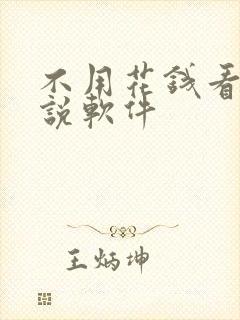 不用花錢看
說軟件
王炳坤